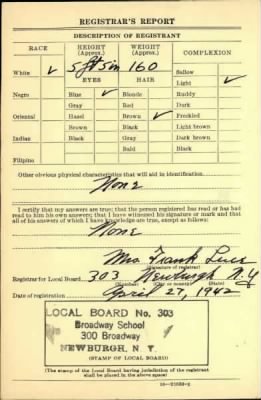 REGISTRAR'S REPORT
DESCRIPTION OF REGISTRANT
RACE HEIGHT (Approx.) WEIGHT (Approx.) COMPLEXION
5 ft 5 in 160 Sallow
White ✓ EYES HAIR Light ✓
Negro Blue ✓ Blonde Ruddy
Gray Red Dark
Oriental Hazel Brown ✓ Freckled
Brown Black Light brown
Indian Black Gray Dark brown
Bald Black
Filipino
Other obvious physical characteristics that will aid in identification
None
I certify that my answers are true; that the person registered has read or has had
read to him his own answers; that I have witnessed his signature or mark and that
all of his answers of which I have knowledge are true, except as follows:
None
Mrs Frank
(Signature of registrar)
Registrar for Local Board 303 Newburgh N.Y
(Number) (City or county) (State)
Date of registration April 27, 1942
LOCAL BOARD No. 303
Broadway School
300 Broadway
NEWBURGH, N. Y.
(STAMP OF LOCAL BOARD)
(The stamp of the Local Board having jurisdiction of the registrant
shall be placed in the above space)